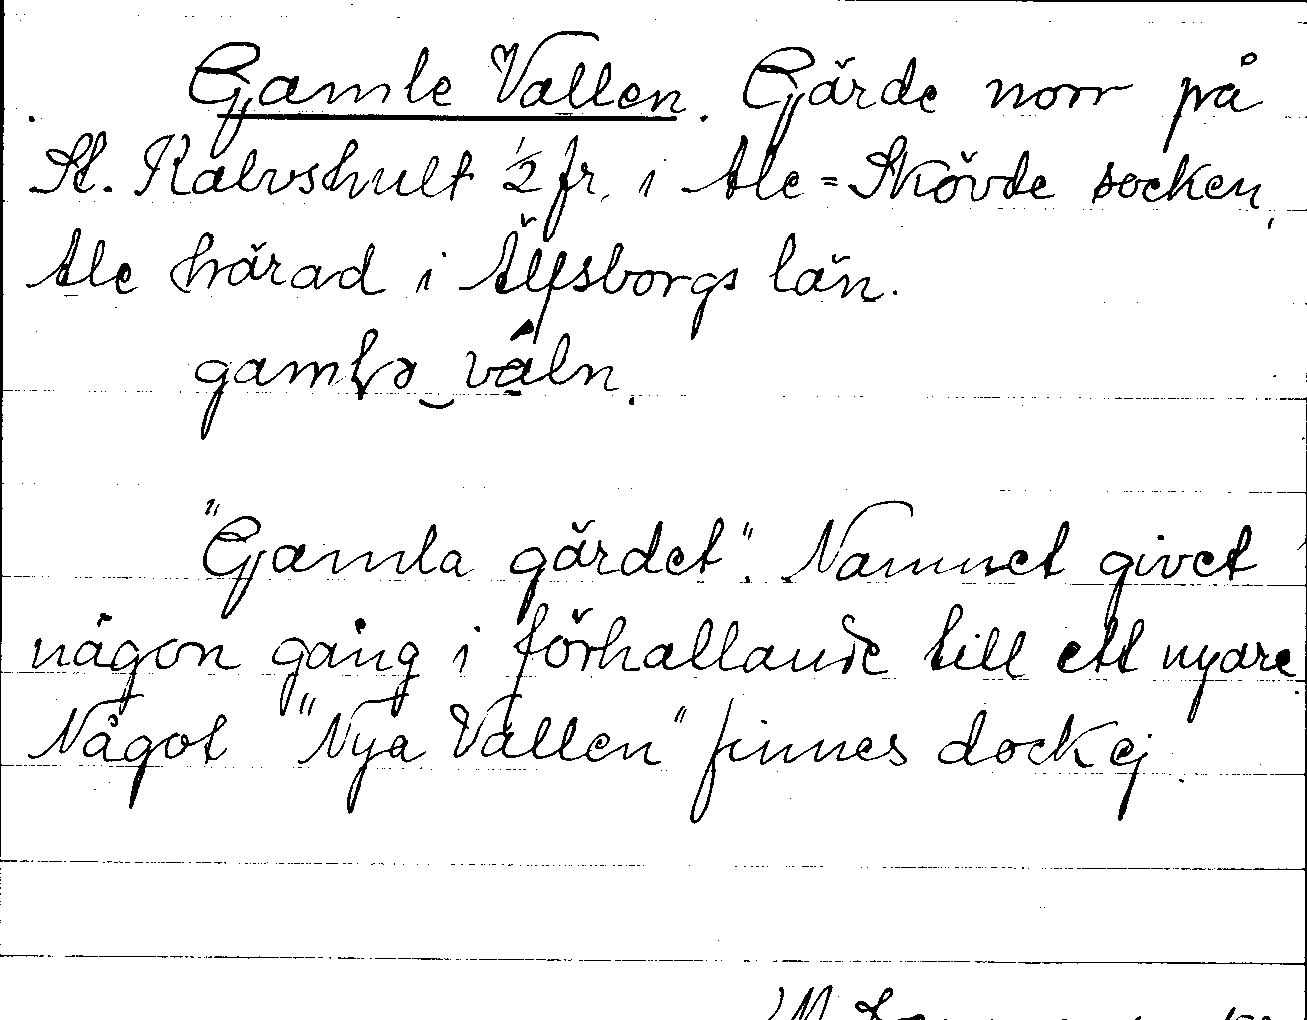 Gamle Vallen. Gärde norr på
St. Kalvshult ½ fr. i Ale=Skövde socken,
Ale härad i Älfsborgs län.
gamlə‿valn.
"Gamla gärdet". Namnet givet
någon gång i förhållande till ett nyare.
Något "Nya Vallen" finnes dock ej.